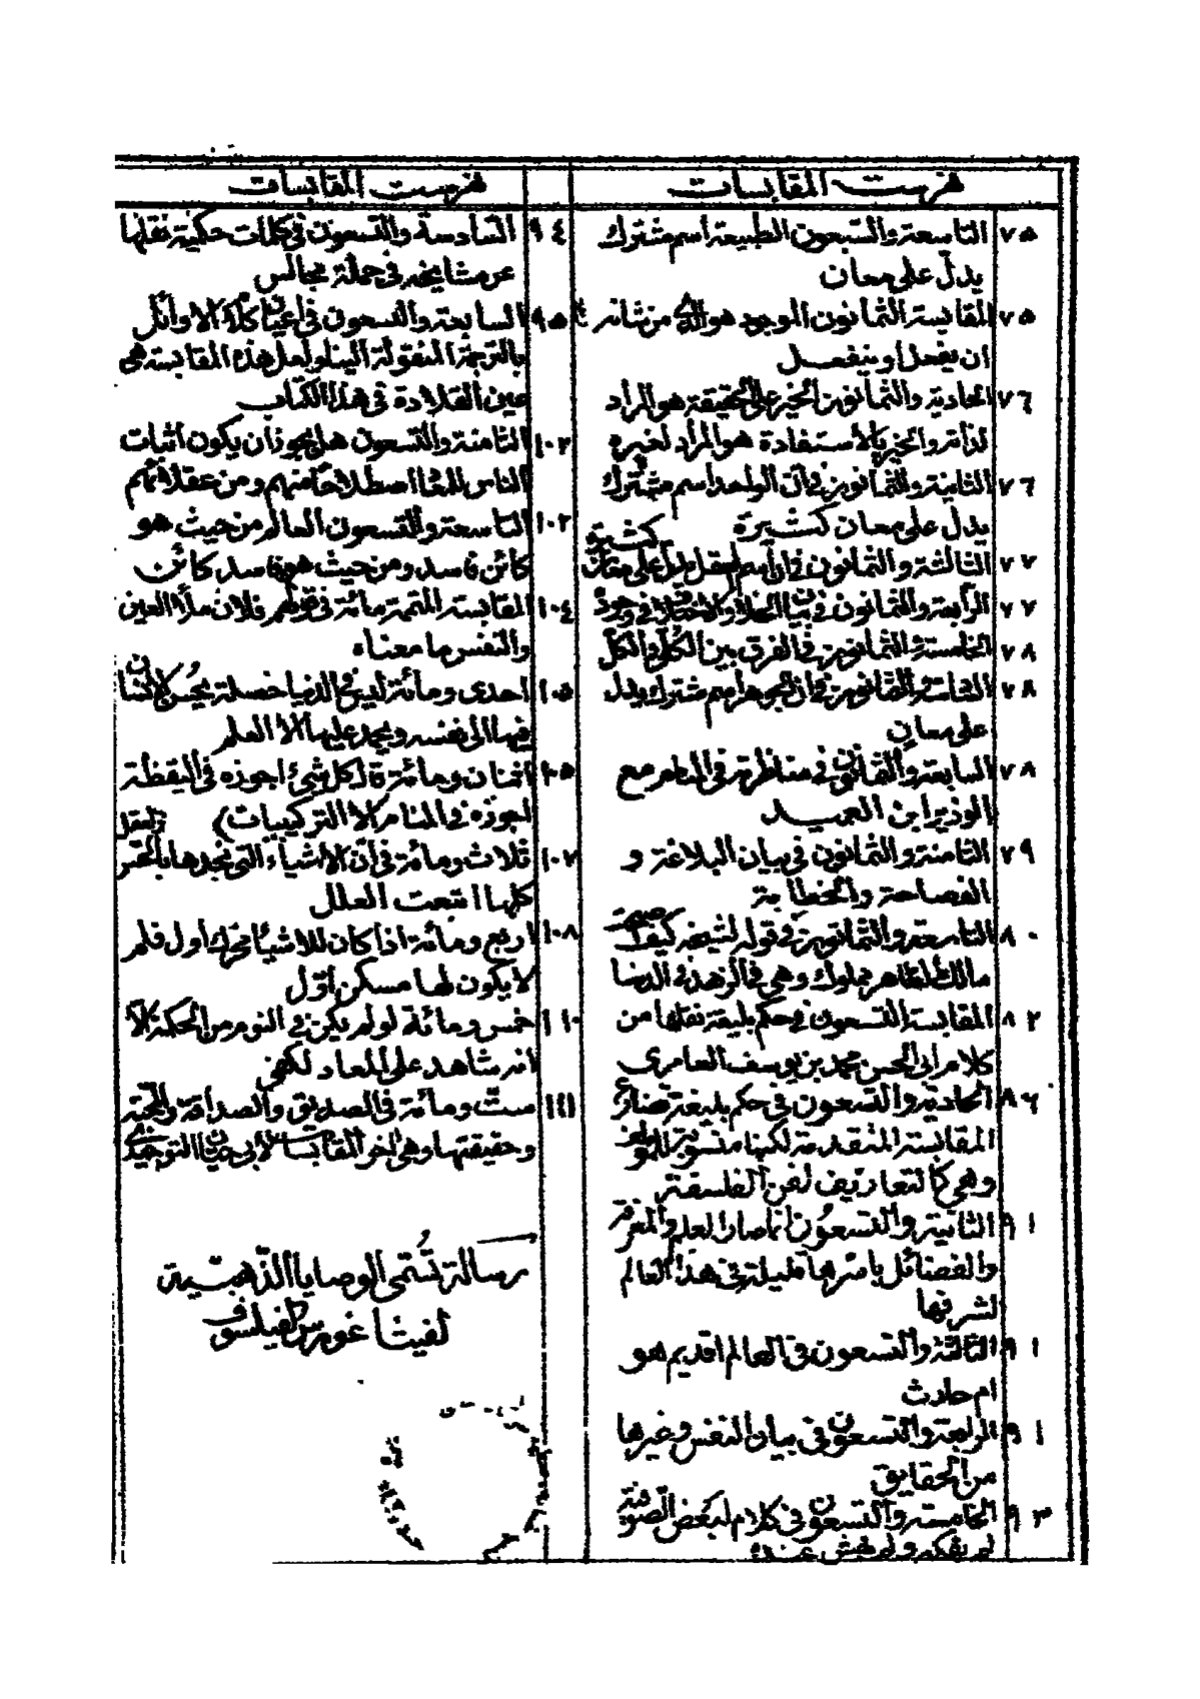 فهرست المقابسات
٧٥ التاسعة والسبعون الطبيعة اسم مشترك
يدل على معان
٧٥ المقابسة الثمانون الموجود هو الذي من شانه
ان يفعل او ينفعل
٧٦ الحادية والثمانون الخير على الحقيقة هو المراد
لذاته والخير بالاستفادة هو المراد لغيره
٧٦ الثانية والثمانون في ان الواحد اسم مشترك
يدل على معان كثيرة
٧٧ الثالثة والثمانون في ان اسم العقل يدل على معان كثيرة
٧٧ الرابعة والثمانون في
٧٨ الخامسة والثمانون في الفرق بين الكلي والكل
٧٨ والثمانون في ان الجوهر اسم مشترك يدل
على معان
٧٨ السابعة والثمانون في مناظرته في المنام مع
الوزير ابن العميد
٧٩ الثامنة والثمانون في بيان البلاغة و
الفصاحة والخطابة
٨٠ التاسعة والثمانون في قوله لشيخه كيف
وهي في الزهد في الدنيا
٨٢ المقابسة التسعون في حكم بليغة نقلها من
كلام ابى الحسن محمد بن يوسف العامرى
٨٦ الحادية والتسعون في حكم بليغة
المقابسة المتقدمة لكنها منسوبة
وهي كالتعاريف لفن الفلسفة
٩١ الثانية والتسعون انما صار العلم والمعرفة
والفضائل باسرها قليلة في هذا العالم
لشرفها
٩١ الثالثة والتسعون في العالم اقديم هو
ام حادث
٩١ الرابعة والتسعون في بيان النفس وغيرها
من الحقايق
٩٣ الخامسة والتسعون في كلام لبعض الصوفية
فهرست المقابسات
٩٤ السادسة والتسعون في كلمات حكمية نقلها
عن مشايخه في جملة مجالس
٩٥ السابعة والتسعون في اعيان كلام الاوائل
بالترجمة المنقولة الينا ولعل هذه المقابسة هي
عين القلادة في هذا الكتاب
١٠٢ الثامنة والتسعون هل يجوز ان يكون اثبات
الناس للمعاد اصطلاحا منهم ومن عقلائهم
١٠٢ التاسعة والتسعون العالم من حيث هو
كائن فاسد ومن حيث هو فاسد كائن
١٠٤ المقابسة المتممة مائة في قولهم فلان ملأ العين
والنفس ما معناه
١٠٥ احدى ومائة ليس في الدنيا خصلة يحسن الانسان
فيها الى نفسه ويحمد عليها الا العلم
١٠٥ اثنان ومائة قال كل شيء اجوزه في اليقظة
اجوزه في المنام الا التركيبات
١٠٧ ثلاث ومائة في ان الاشياء التي نجدها بالحس والعقل
كلها اتبعت العلل
١٠٨ اربع ومائة اذا كان للاشياء محرك اول فلم
لا يكون لها مسكن اول
١١٠ خمس ومائة لو لم يكن في النوم من الحكمة الا
انه شاهد على المعاد لكفى
١١١ ست ومائة في الصديق والصداقة والمحبة
وحقيقتها وهي اخر المقابسات لأبى حيان التوحيدى
رسالة تسمى الوصايا الذهبية
لفيثاغورس الفيلسوف